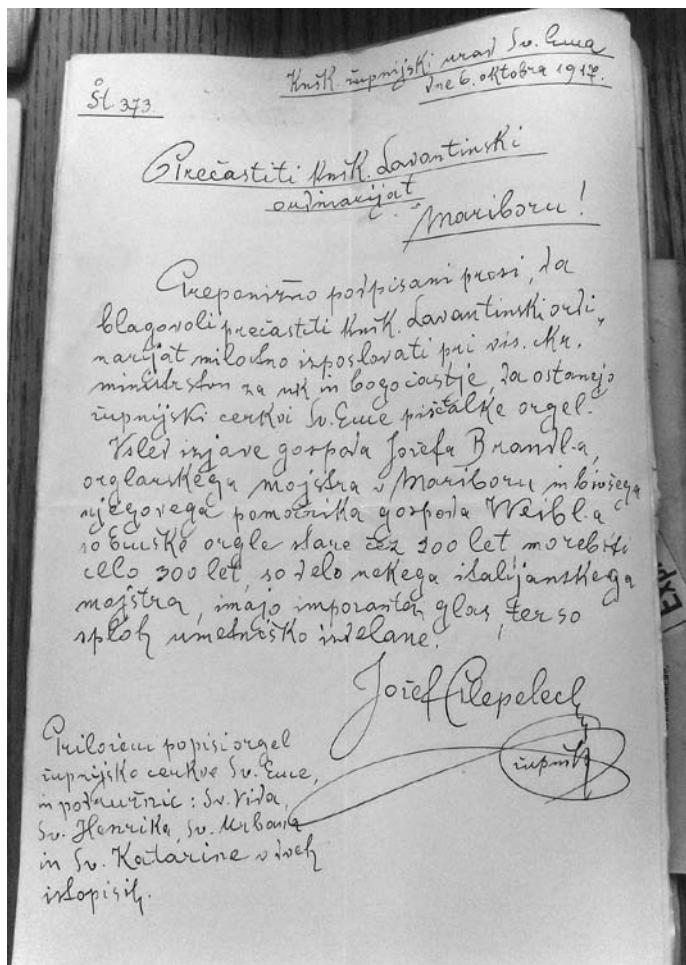 Knšk. župnijski urad Sv. Ema
dne 6. oktobra 1917.
Št. 373.
Prečastiti knšk. Lavantinski
ordinarijat
Mariboru!
Preponižno podpisani prosi, da
blagovoli prečastiti knšk. Lavantinski ordi,
narijat milostno izposlovati pri vis. ckr.
ministrstvu za uk in bogočastje, da ostanejo
župnijski cerkvi Sv. Eme piščalke orgel.
Vsled izjave gospoda Josefa Brandl-a,
orglarskega mojstra v Mariboru in bivšega
njegovega pomočnika gospoda Weibl-a
so Emske orgle stare čez 200 let morebiti
celo 300 let, so delo nekega italijanskega
mojstra, imajo imporanten glas, ter so
sploh umetniško izdelane.
Josef
župnik
Priložem popisi orgel
župnijske cerkve Sv. Eme,
in podružnic: Sv. Vida,
Sv. Henrika, Sv. Urbana
in Sv. Katarine v dveh
istopisih.
EXP